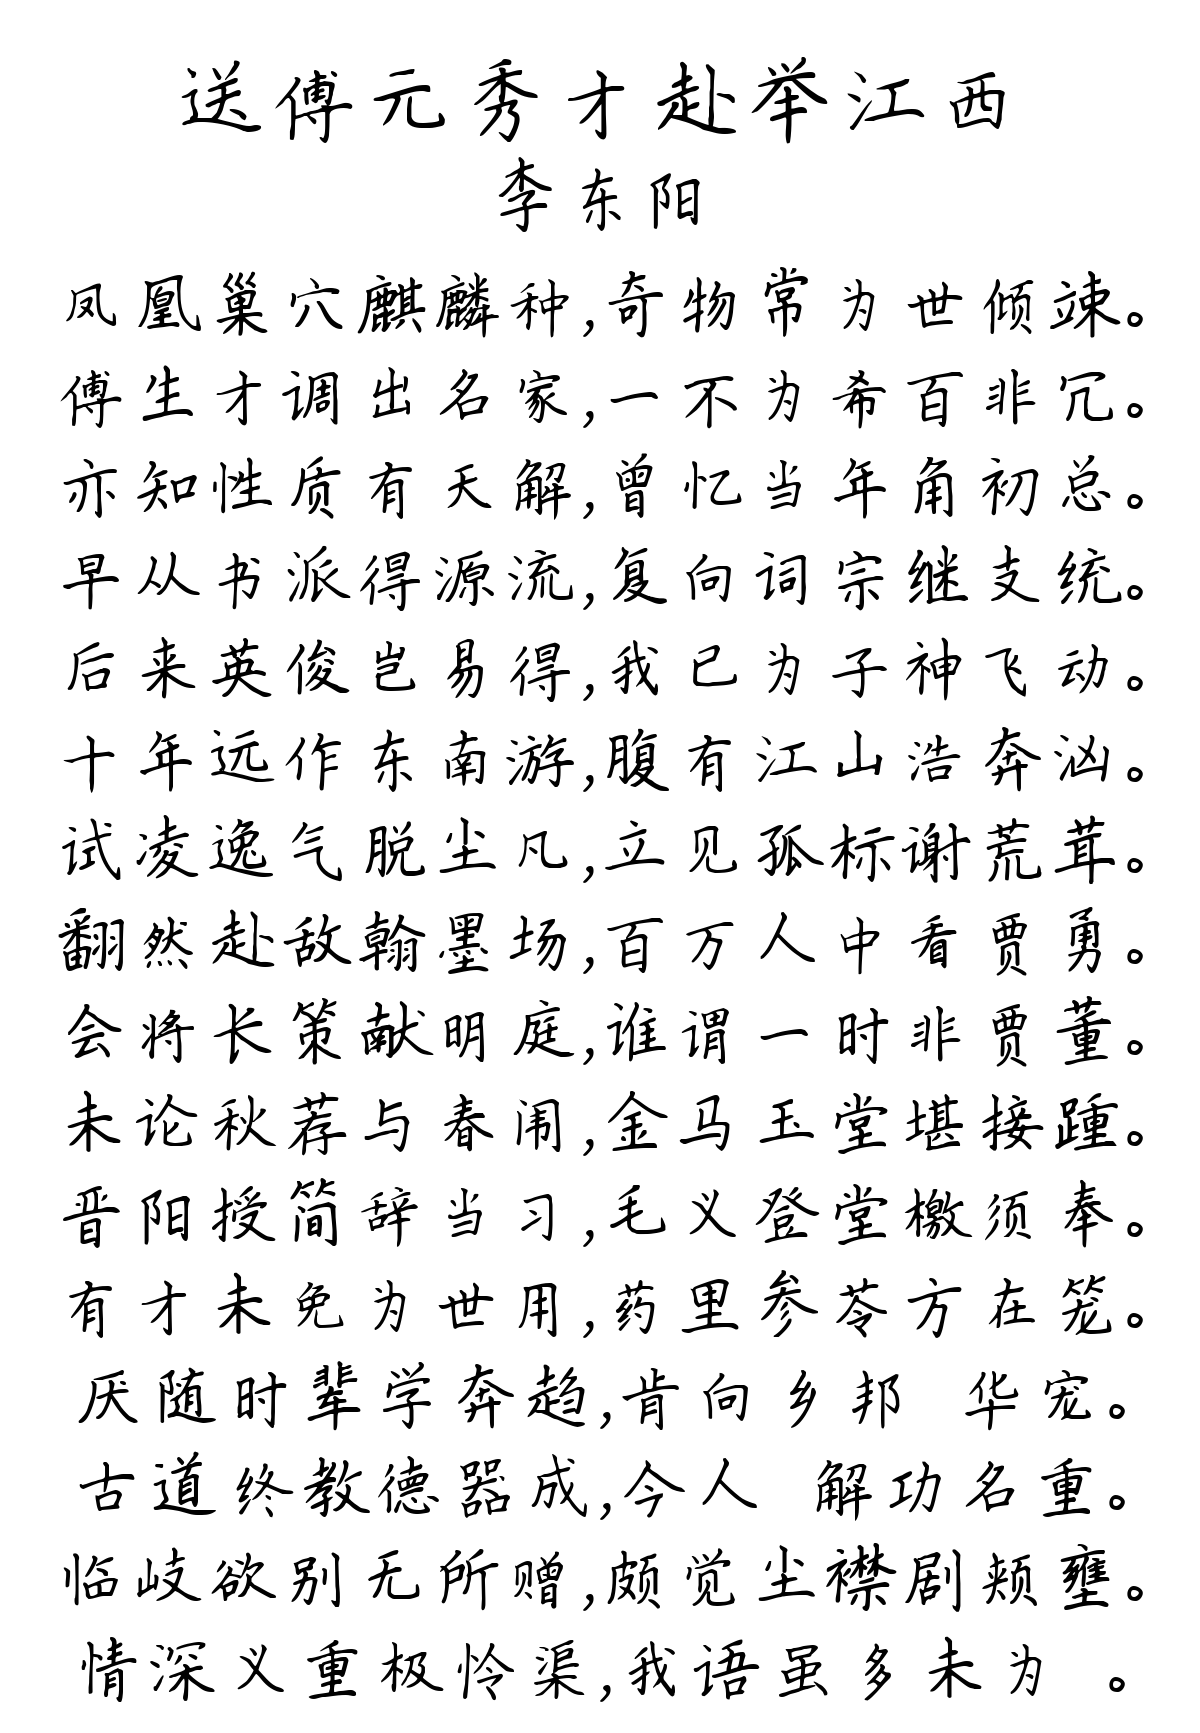 送傅元秀才赴举江西
李东阳
凤凰巢穴麒麟种,奇物常为世倾竦。
傅生才调出名家,一不为希百非冗。
亦知性质有天解,曾忆当年角初总。
早从书派得源流,复向词宗继支统。
后来英俊岂易得,我已为子神飞动。
十年远作东南游,腹有江山浩奔汹。
试凌逸气脱尘凡,立见孤标谢荒茸。
翻然赴敌翰墨场,百万人中看贾勇。
会将长策献明庭,谁谓一时非贾董。
未论秋荐与春闱,金马玉堂堪接踵。
晋阳授简辞当习,毛义登堂檄须奉。
有才未免为世用,药里参苓方在笼。
厌随时辈学奔趋,肯向乡邦 华宠。
古道终教德器成,今人 解功名重。
临岐欲别无所赠,颇觉尘襟剧颊壅。
情深义重极怜渠,我语虽多未为 。